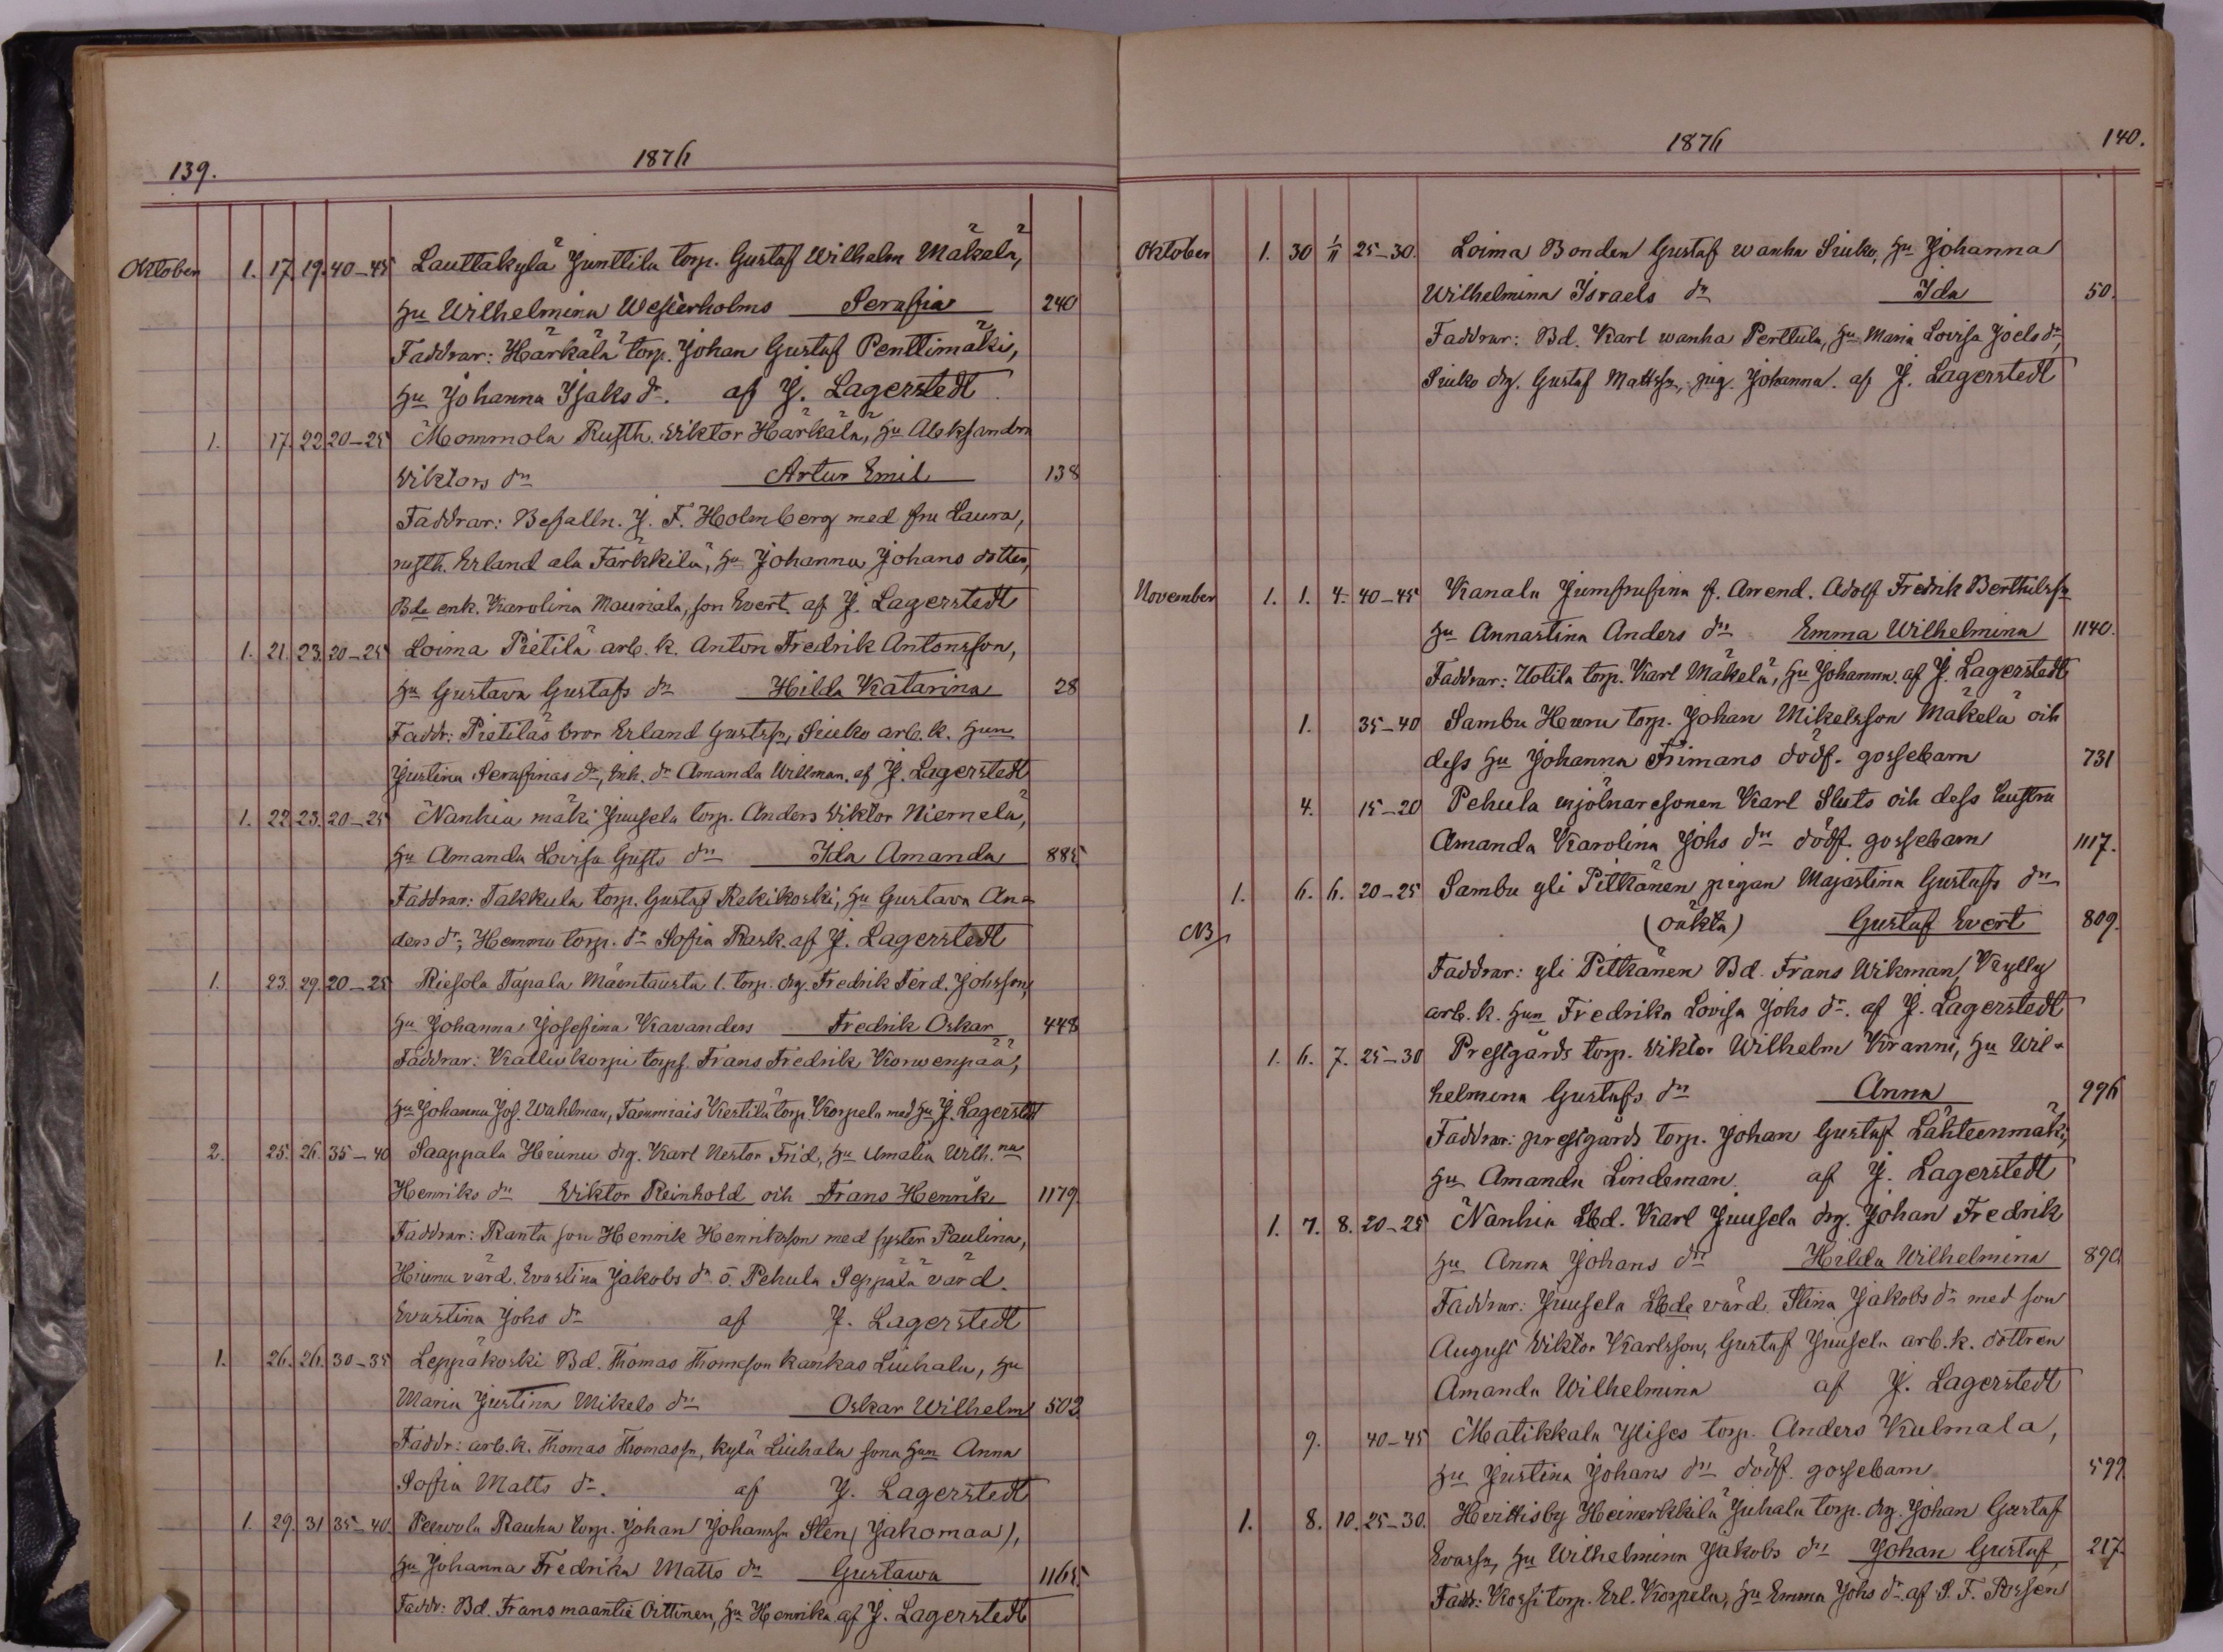 139.
1876
Oktober 1. 17. 19. 40-45 Lauttakylä Junttila torp. Gustaf Wilhelm Mäkelä,
Hu Wilhelmina Westerholms Serafia 240
Faddrar: Härkälä torp. Johan Gustaf Penttimäki,
Hu Johanna Isaks dr. af J. Lagerstedt
1. 17. 22. 20-25 Mommola Rusth. Viktor Härkälä, Hu Aleksandra
Viktors dr Artur Emil 138
Faddrar: Befalln. J. F. Holmberg med fru Laura,
rusth. Erland ala Färkkilä, Hu Johanna Johans dotter,
Bde enk. Karolina Mauriala, son Evert af J. Lagerstedt
1. 21. 23. 20-25 Loima Pietilä arb. k. Anton Fredrik Antonsson,
Hu Gustava Gustafs dr Hilda Katarina 28
Faddr: Pietiläs bror Erland Gustfsn, Siuko arb. k. Hun
Justina Serafinas dr, Inh. dr Amanda Willman. af J. Lagerstedt
1. 22. 23. 20-25 Nanhia mäki Juusela torp. Anders Viktor Niemelä,
Hu Amanda Lovisa Gusts dr Ida Amanda 885
Faddrar: Takkula torp. Gustaf Rekikoski, Hu Gustava An-
ders dr, Hemmo torp. dr Sofia Rask. af J. Lagerstedt
1. 23. 29. 20-25 Riesola Tapala Mäentausta l. torp. drg. Fredrik Ferd. Johsson,
Hu Johanna Josefina Kavanders Fredrik Oskar 448
Faddrar: Kallio korpi torp. Frans Fredrik Korwenpää,
Hu Johanna Jos. Wahlman, Tammiais Kiertilä torp. Korpela med Hu J. Lagerstedt
2. 25. 26. 35-40 Saappala Heiunu drg. Karl Nestor Frid, Hu Amalia Wilh.na
Henriks dr Viktor Reinhold och Frans Henrik 1179.
Faddrar: Ranta son Henrik Henriksson med syster Paulina,
Hiunu värd. Evastina Jakobs dr o. Pehula Seppälä värd.
Evastina Johs dr af J. Lagerstedt
1. 26. 26. 30-35 Leppäkoski Bd. Thomas Thomsson kankas Liuhala, Hu
Maria Justina Mikels dr Oskar Wilhelm 502
Faddr: arb. k. Thomas Thomassn, kylä Liuhala sona Hun Anna
Sofia Matts dr. af J. Lagerstedt
1. 29. 31 35-40 Peewola Rauha torp. Johan Johanssn Sten (Jakomaa),
Hu Johanna Fredrika Matts dr Gustawa 1165.
Faddr: Bd. Frans maantie Oittinen, Hu Henrika af J. Lagerstedt
1876
140.
Oktober 1. 30 1/11 25-30. Loima Bonden Gustaf wanha Siuko, Hu Johanna
Wilhelmina Israels dr Ida 50.
Faddrar: Bd. Karl wanha Perttula, Hu Maria Lovisa Joels dr,
Siuko drg. Gustaf Mattssn, pig. Johanna. af J. Lagerstedt
November 1. 1. 4. 40-45 Kanala Jumfrufina f. Arrend. Adolf Fredrik Berthilssn
Hu Annastina Anders dr Emma Wilhelmina 1140.
Faddrar: Uotila torp. Karl Mäkelä, Hu Johanna. af J. Lagerstedt
1. 35-40 Sambu Heiunu torp. Johan Mikelsson Mäkelä och
dess Hu Johanna Frimans dödf. gossebarn 731
4. 15-20 Pehula mjölnaresonen Karl Sluts och dess hustru
Amanda Karolina Johs dr dödf. gossebarn 1117.
1. 6. 6. 20-25 Sambu yli Pitkänen pigan Majastina Gustafs dr
NB (oäkta) Gustaf Evert 809.
Faddrar: yli Pitkänen Bd. Frans Wikman, Krylly
arb. k. Hun Fredrika Lovisa Johs dr. af J. Lagerstedt
1. 6. 7. 25-30 Prestgårds torp. Viktor Wilhelm Kranni, Hu Wil-
helmina Gustafs dr Anna 996
Faddrar: prestgårds torp. Johan Gustaf Lähteenmäki,
Hu Amanda Lindeman. af J. Lagerstedt
1. 7. 8. 20-25 Nanhia Lbd. Karl Juusela drg. Johan Fredrik
Hu Anna Johans dr Hilda Wilhelmina 890
Faddrar: Juusela Lbde värd. Stina Jakobs dr med son
August Viktor Karlsson, Gustaf Juusela arb. k. dottren
Amanda Wilhelmina af J. Lagerstedt
9. 40-45 Matikkala Ylises torp. Anders Kulmala,
Hu Justina Johans dr dödf. gossebarn 599
1. 8. 10. 25-30. Hvittisby Heinerkkilä Juhala torp. drg. Johan Gustaf
Evassn, Hu Wilhelmina Jakobs dr Johan Gustaf, 217.
Faddr: Kossi torp. Erl. Korpela, Hu Emma Johs dr. af S. F. Prssen